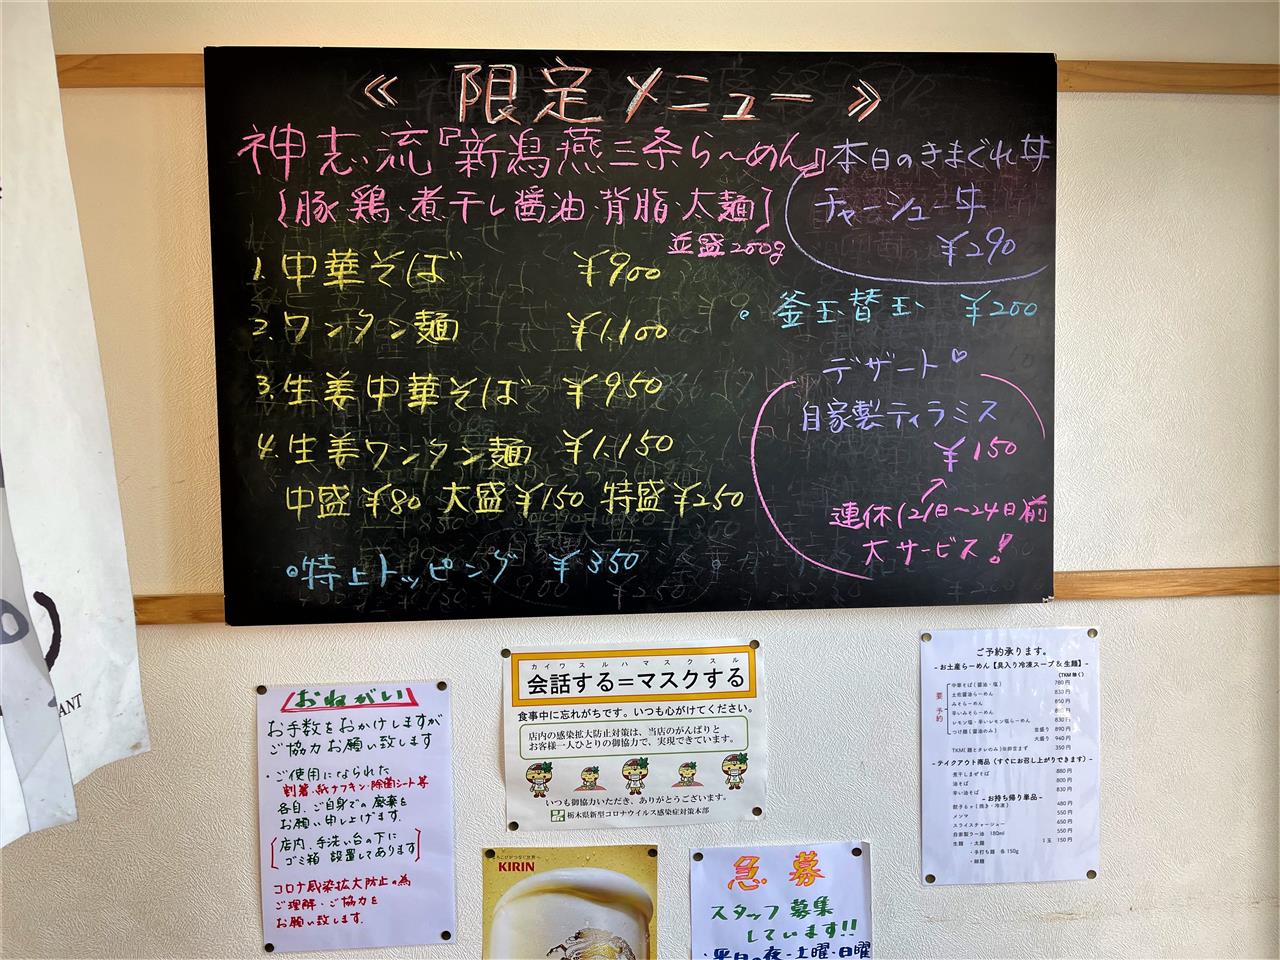 ≪ 限定メニュー ≫
神志流『新潟燕三条ら〜めん』
[豚鶏・煮干し醤油・背脂・太麺]
並盛200g
1. 中華そば ¥900
2. ワンタン麺 ¥1.100
3. 生姜中華そば ¥950
4. 生姜ワンタン麺 ¥1.150
中盛¥80 大盛¥150 特盛¥250
特上トッピング ¥350
本日のきまぐれ丼
チャーシュー丼
¥290
釜玉替玉 ¥200
デザート♡
自家製ティラミス
¥150
連休(21日〜24日)前
大サービス!
おねがい
お手数をおかけしますが
ご協力お願い致します
・ご使用になられた
割箸・紙ナフキン・除菌シート等
各自、ご自身での廃棄を
お願い申し上げます。
[店内、手洗い台の下に
ゴミ箱 設置してあります]
コロナ感染拡大防止の為
ご理解・ご協力を
お願い致します。
カイワスルハマスクスル
会話する=マスクする
食事中に忘れがちです。いつも心がけてください。
店内の感染拡大防止対策は、当店のがんばりと
お客様一人ひとりの御協力で、実現できています。
いつも御協力いただき、ありがとうございます。
栃木県新型コロナウイルス感染症対策本部
KIRIN
急募
スタッフ募集
しています!!
・平日の夜・土曜・日曜
ご予約承ります。
- お土産らーめん【具入り冷凍スープ&生麺】-
(TKM除く)
要予約
中華そば(醤油・塩) 780円
土佐醤油らーめん 830円
みそらーめん 850円
辛いみそらーめん
レモン塩・辛いレモン塩らーめん 830円
つけ麺(醤油のみ) 並盛り 890円
大盛り 940円
TKM(麺とタレのみ)※卵含まず 350円
- テイクアウト商品(すぐにお召し上がりできます) -
煮干しまぜそば 880円
油そば 800円
辛い油そば 830円
- お持ち帰り単品 -
餃子6ヶ(焼き・冷凍) 480円
メンマ 550円
スライスチャーシュー 650円
自家製ラー油 180ml 550円
生麺 ・太麺 1玉 150円
・手打ち麺 各150g
・細麺
ANT